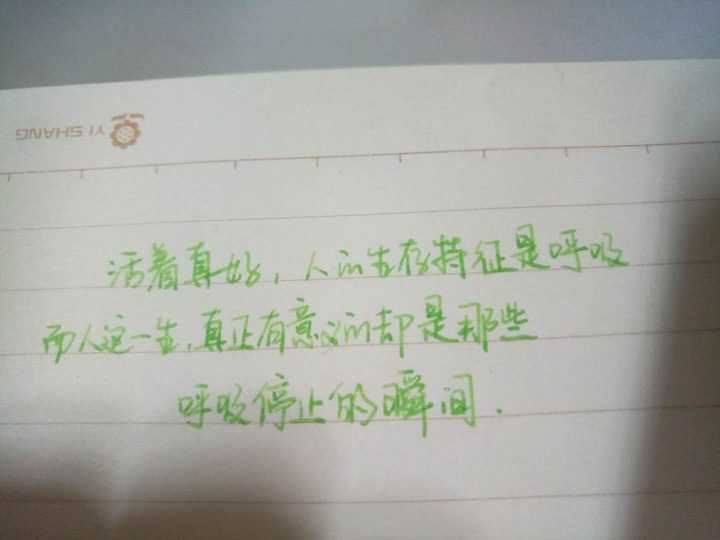 YI SHANG
活着真好，人的生存特征是呼吸
而人这一生，真正有意义的却是那些
呼吸停止的瞬间.